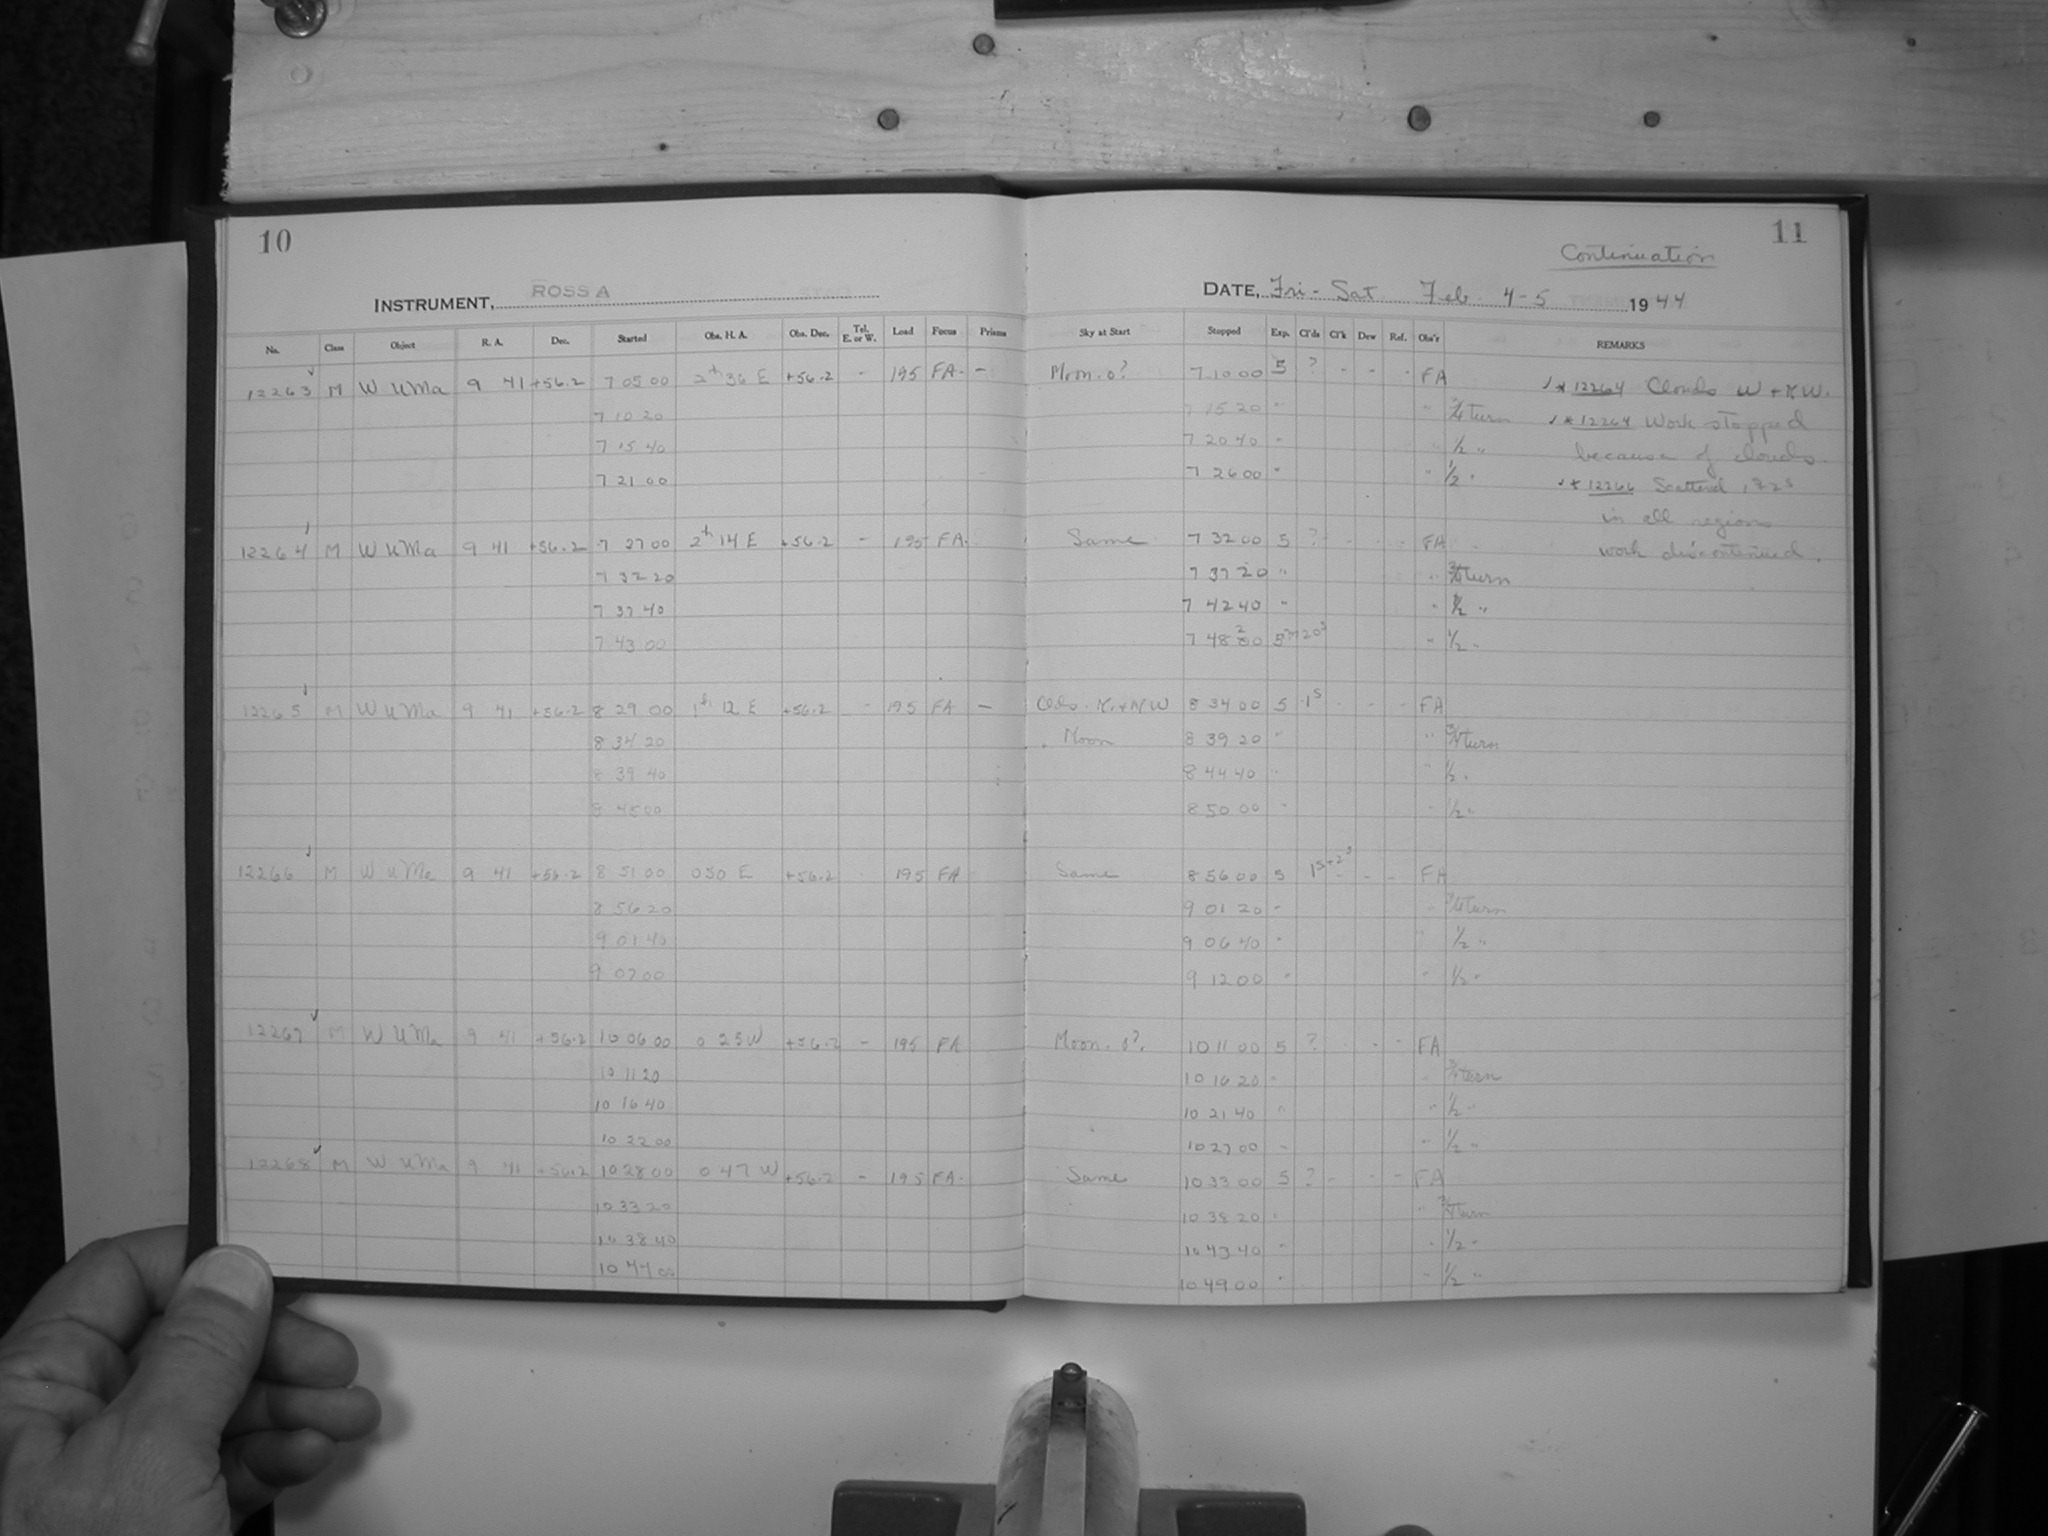 10
INSTRUMENT, ROSS A
No. Class Object R. A. Dec. Started Obs. H. A. Obs. Dec. Tel. E. or W. Load Focus Prisms
12263 M W UMa 9 41 +56.2 7 05 00 2h 36 E +56.2 - 195 FA. -
7 10 20
7 15 40
7 21 00
12264 M W UMa 9 41 +56.2 7 27 00 2h 14 E +56.2 - 195 FA.
7 32 20
7 37 40
7 43 00
12265 M W UMa 9 41 +56.2 8 29 00 1h 12 E +56.2 - 195 FA -
8 34 20
8 39 40
8 45 00
12266 M W UMa 9 41 +56.2 8 51 00 0 50 E +56.2 195 FA
8 56 20
9 01 40
9 07 00
12267 M W UMa 9 41 +56.2 10 06 00 0 25 W +56.2 - 195 FA
10 11 20
10 16 40
10 22 00
12268 M W UMa 9 41 +56.2 10 28 00 0 47 W +56.2 - 195 FA.
10 33 20
10 38 40
10 44 00
11
Continuation
DATE, Fri - Sat Feb. 4-5 1944
Sky at Start Stopped Exp. Cl'ds Cl'k Dew Ref. Obs'r REMARKS
Moon. o? 7 10 00 5 ? - - - FA * 12264 Clouds W + NW.
7 15 20 " " 3/4 turn * 12264 Work stopped
7 20 40 " " 1/2 " because of clouds.
7 26 00 " " 1/2 " * 12266 Scattered
in all regions
Same 7 32 00 5 ? - - - FA work discontinued.
7 37 20 " " 3/4 turn
7 42 40 " " 1/2 "
7 48 20 5m 20s " 1/2 "
Clds. N. + NW 8 34 00 5 1s - - - FA
Moon 8 39 20 " " 3/4 turn
8 44 40 " " 1/2 "
8 50 00 " " 1/2 "
Same 8 56 00 5 1s+2s - - - FA
9 01 20 " " 3/4 turn
9 06 40 " " 1/2 "
9 12 00 " " 1/2 "
Moon. o?. 10 11 00 5 ? - - - FA
10 16 20 " " 3/4 turn
10 21 40 " " 1/2 "
10 27 00 " " 1/2 "
Same 10 33 00 5 ? - - - FA
10 38 20 " " 3/4 turn
10 43 40 " " 1/2 "
10 49 00 " " 1/2 "